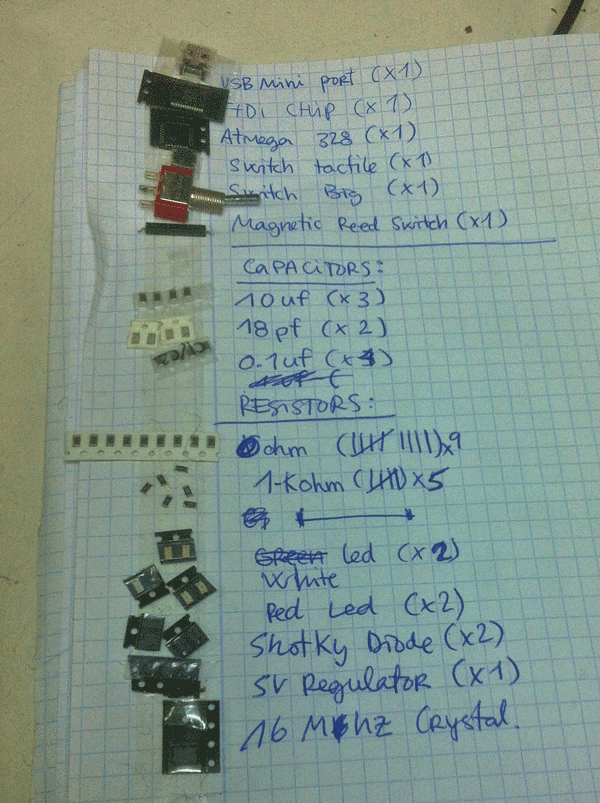 USB Mini port (x1)
FTDI CHIP (x1)
ATmega 328 (x1)
Switch tactile (x1)
Switch Big (x1)
Magnetic Reed Switch (x1)
CAPACITORS:
10uf (x3)
18pf (x2)
0.1uf (x4)
RESISTORS:
0ohm (||||| ||||)x9
1-Kohm (|||||)x5
Green led (x2)
White
Red Led (x2)
ShotKy Diode (x2)
5V Regulator (x1)
16 MHZ Crystal.